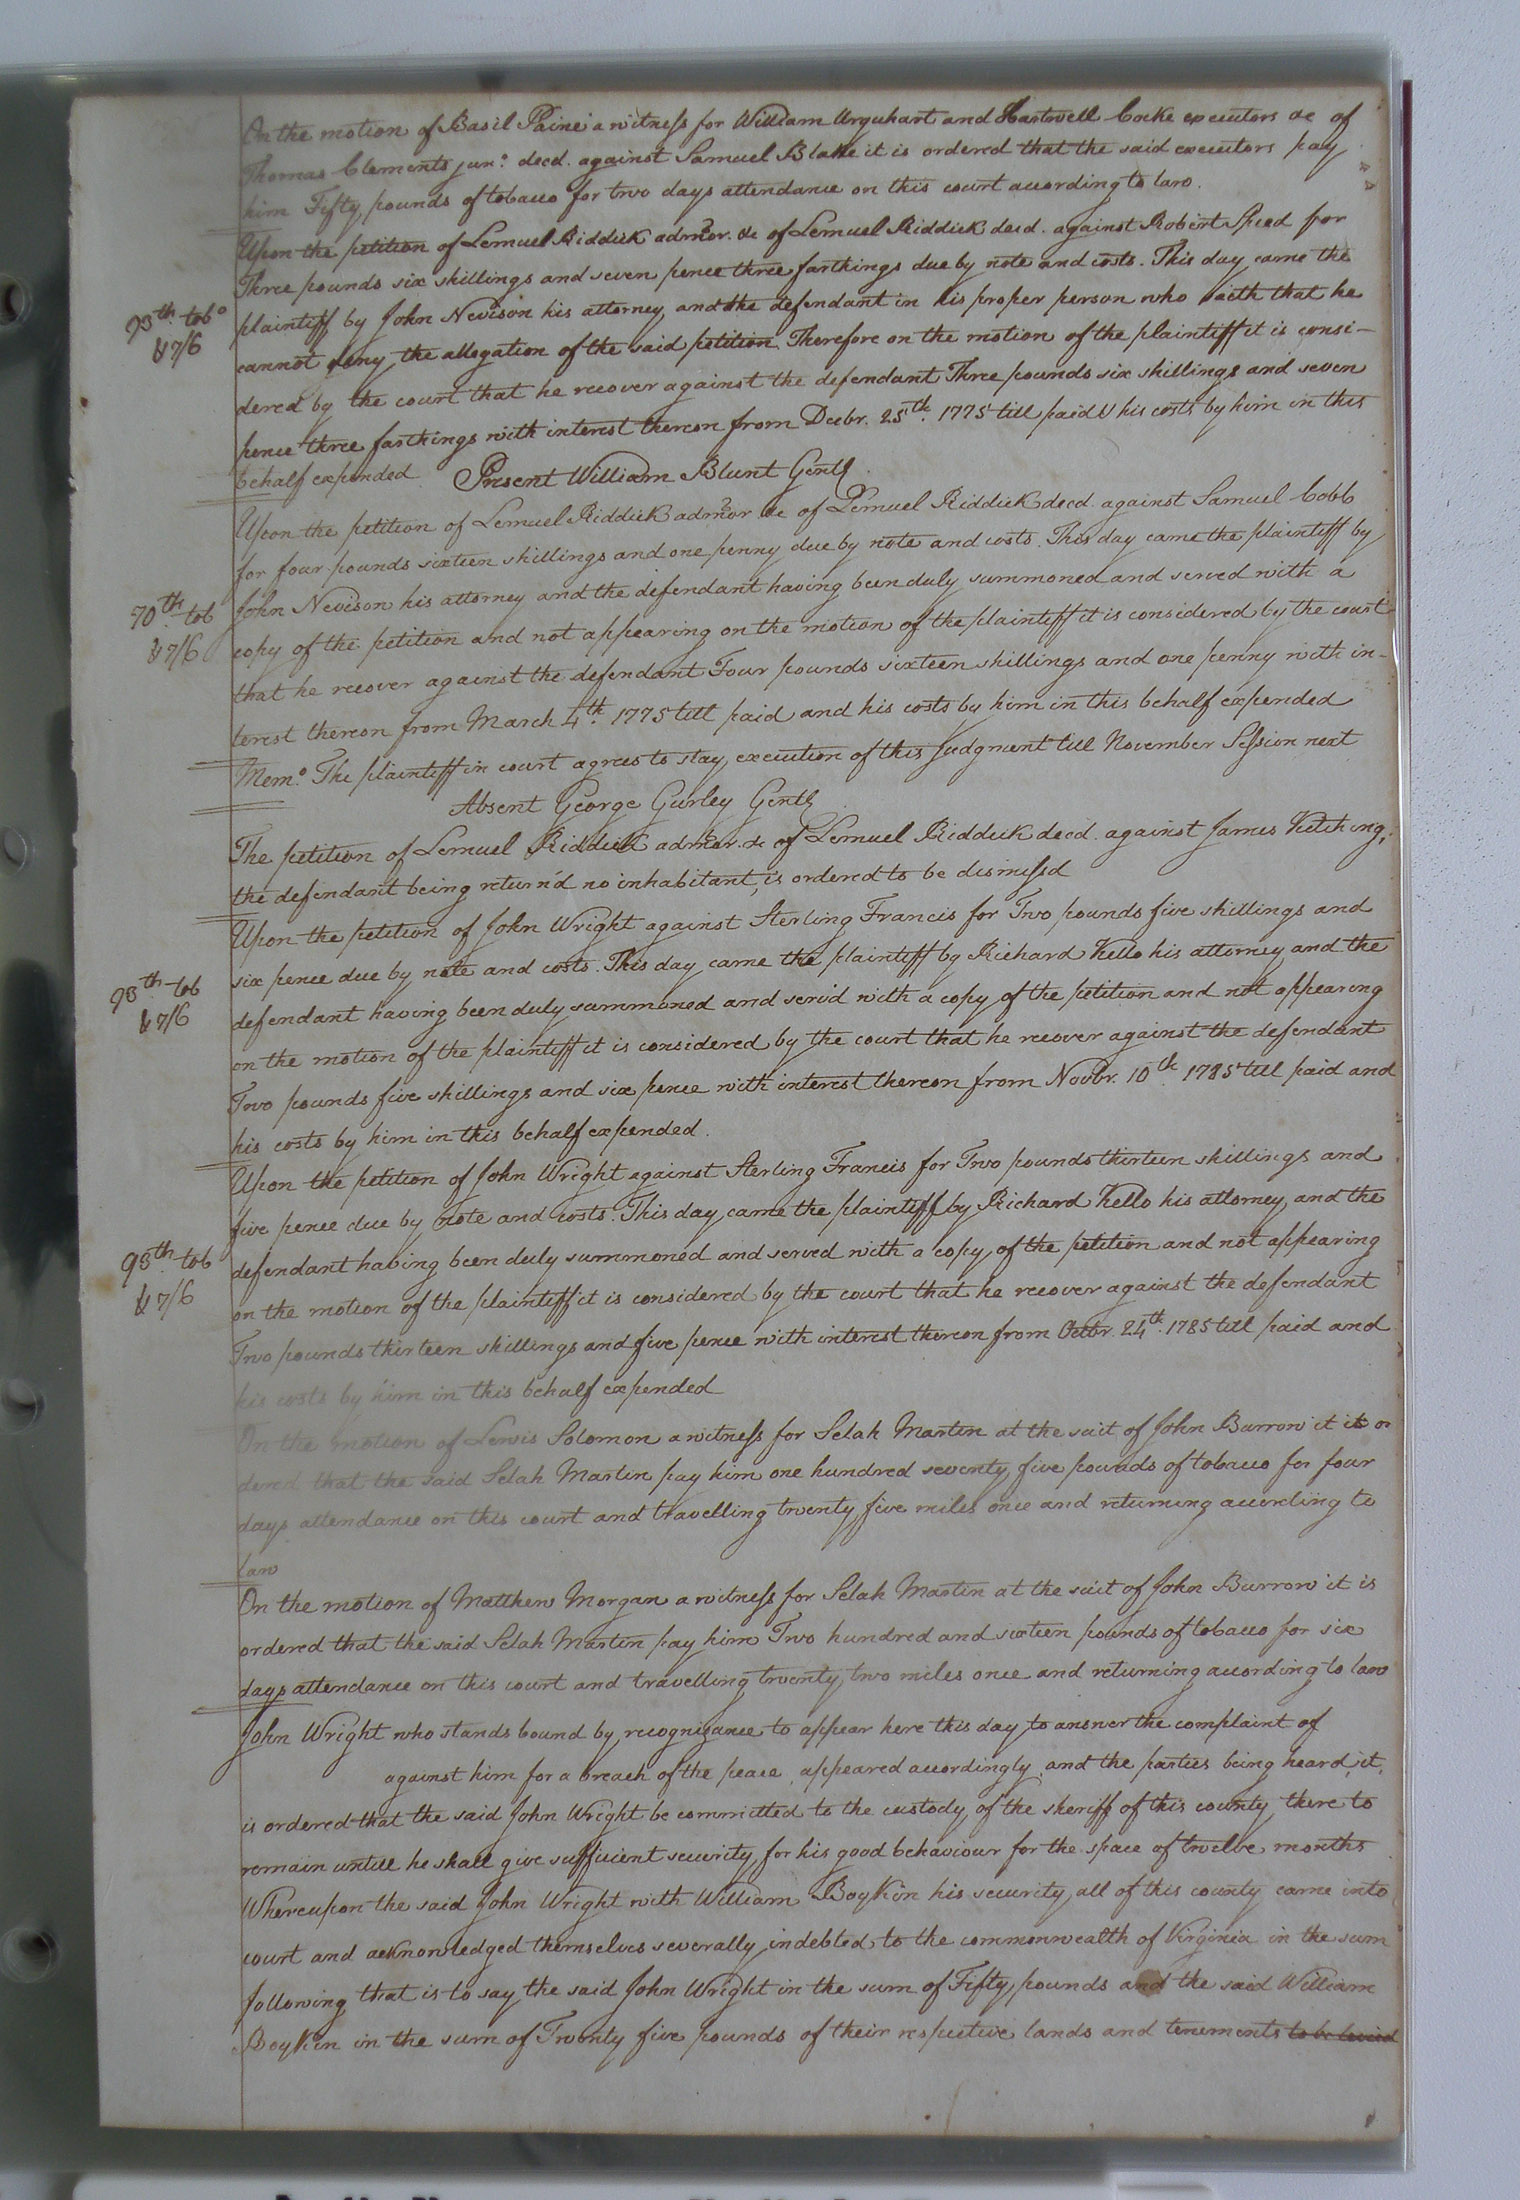 On the motion of Basil Paine a witness for William Urquhart and Hartwell Cocke executors &c of
Thomas Clements junr. decd. against Samuel Blake it is ordered that the said executors pay
him Fifty pounds of tobacco for two days attendance on this court according to law.
Upon the petition of Lemuel Riddick admor. &c of Lemuel Riddick decd. against Robert Speed for
Three pounds six shillings and seven pence three farthings due by note and costs. This day came the
93th tobo
& 7/6
plaintiff by John Nevison his attorney and the defendant in his proper person who saith that he
cannot deny the allegation of the said petition. Therefore on the motion of the plaintiff it is consi-
dered by the court that he recover against the defendant Three pounds six shillings and seven
pence three farthings with interest thereon from Decbr. 25th. 1775 till paid & his costs by him in this
behalf expended. Present William Blunt Gentl.
Upon the petition of Lemuel Riddick admor &c of Lemuel Riddick decd. against Samuel Cobb
for four pounds sixteen shillings and one penny due by note and costs. This day came the plaintiff by
70th tob
& 7/6
John Nevison his attorney and the defendant having been duly summoned and served with a
copy of the petition and not appearing on the motion of the plaintiff it is considered by the court
that he recover against the defendant Four pounds sixteen shillings and one penny with in-
terest thereon from March 4th. 1775 till paid and his costs by him in this behalf expended
Memo. The plaintiff in court agrees to stay execution of this Judgment till November Session next
Absent George Gurley Gentl.
The petition of Lemuel Riddick admor. &c of Lemuel Riddick decd. against James Kitching,
the defendant being return'd no inhabitant, is ordered to be dismissd
Upon the petition of John Wright against Sterling Francis for Two pounds five shillings and
six pence due by note and costs. This day came the plaintiff by Richard Kello his attorney and the
93th tob
& 7/6
defendant having been duly summoned and serv'd with a copy of the petition and not appearing
on the motion of the plaintiff it is considered by the court that he recover against the defendant
Two pounds five shillings and six pence with interest thereon from Novbr. 10th. 1785 till paid and
his costs by him in this behalf expended.
Upon the petition of John Wright against Sterling Francis for Two pounds thirteen shillings and
five pence due by note and costs. This day came the plaintiff by Richard Kello his attorney, and the
93th tob
& 7/6
defendant having been duly summoned and served with a copy of the petition and not appearing
on the motion of the plaintiff it is considered by the court that he recover against the defendant
Two pounds thirteen shillings and five pence with interest thereon from Octbr. 24th. 1785 till paid and
his costs by him in this behalf expended
On the motion of Lewis Solomon a witness for Selah Martin at the suit of John Barrow it is or
dered that the said Selah Martin pay him one hundred seventy five pounds of tobacco for four
days attendance on this court and travelling twenty five miles once and returning according to
law
On the motion of Matthew Morgan a witness for Selah Martin at the suit of John Barrow it is
ordered that the said Selah Martin pay him Two hundred and sixteen pounds of tobacco for six
days attendance on this court and travelling twenty two miles once and returning according to law
John Wright who stands bound by recognizance to appear here this day to answer the complaint of
against him for a breach of the peace, appeared accordingly, and the parties being heard, it
is ordered that the said John Wright be committed to the custody of the sheriff of this county there to
remain untill he shall give sufficient security for his good behaviour for the space of twelve months
Whereupon the said John Wright with William Boykin his security all of this county came into
court and acknowledged themselves severally indebted to the commonwealth of Virginia in the sum
following that is to say the said John Wright in the sum of Fifty pounds and the said William
Boykin in the sum of Twenty five pounds of their respective lands and tenements to be levied